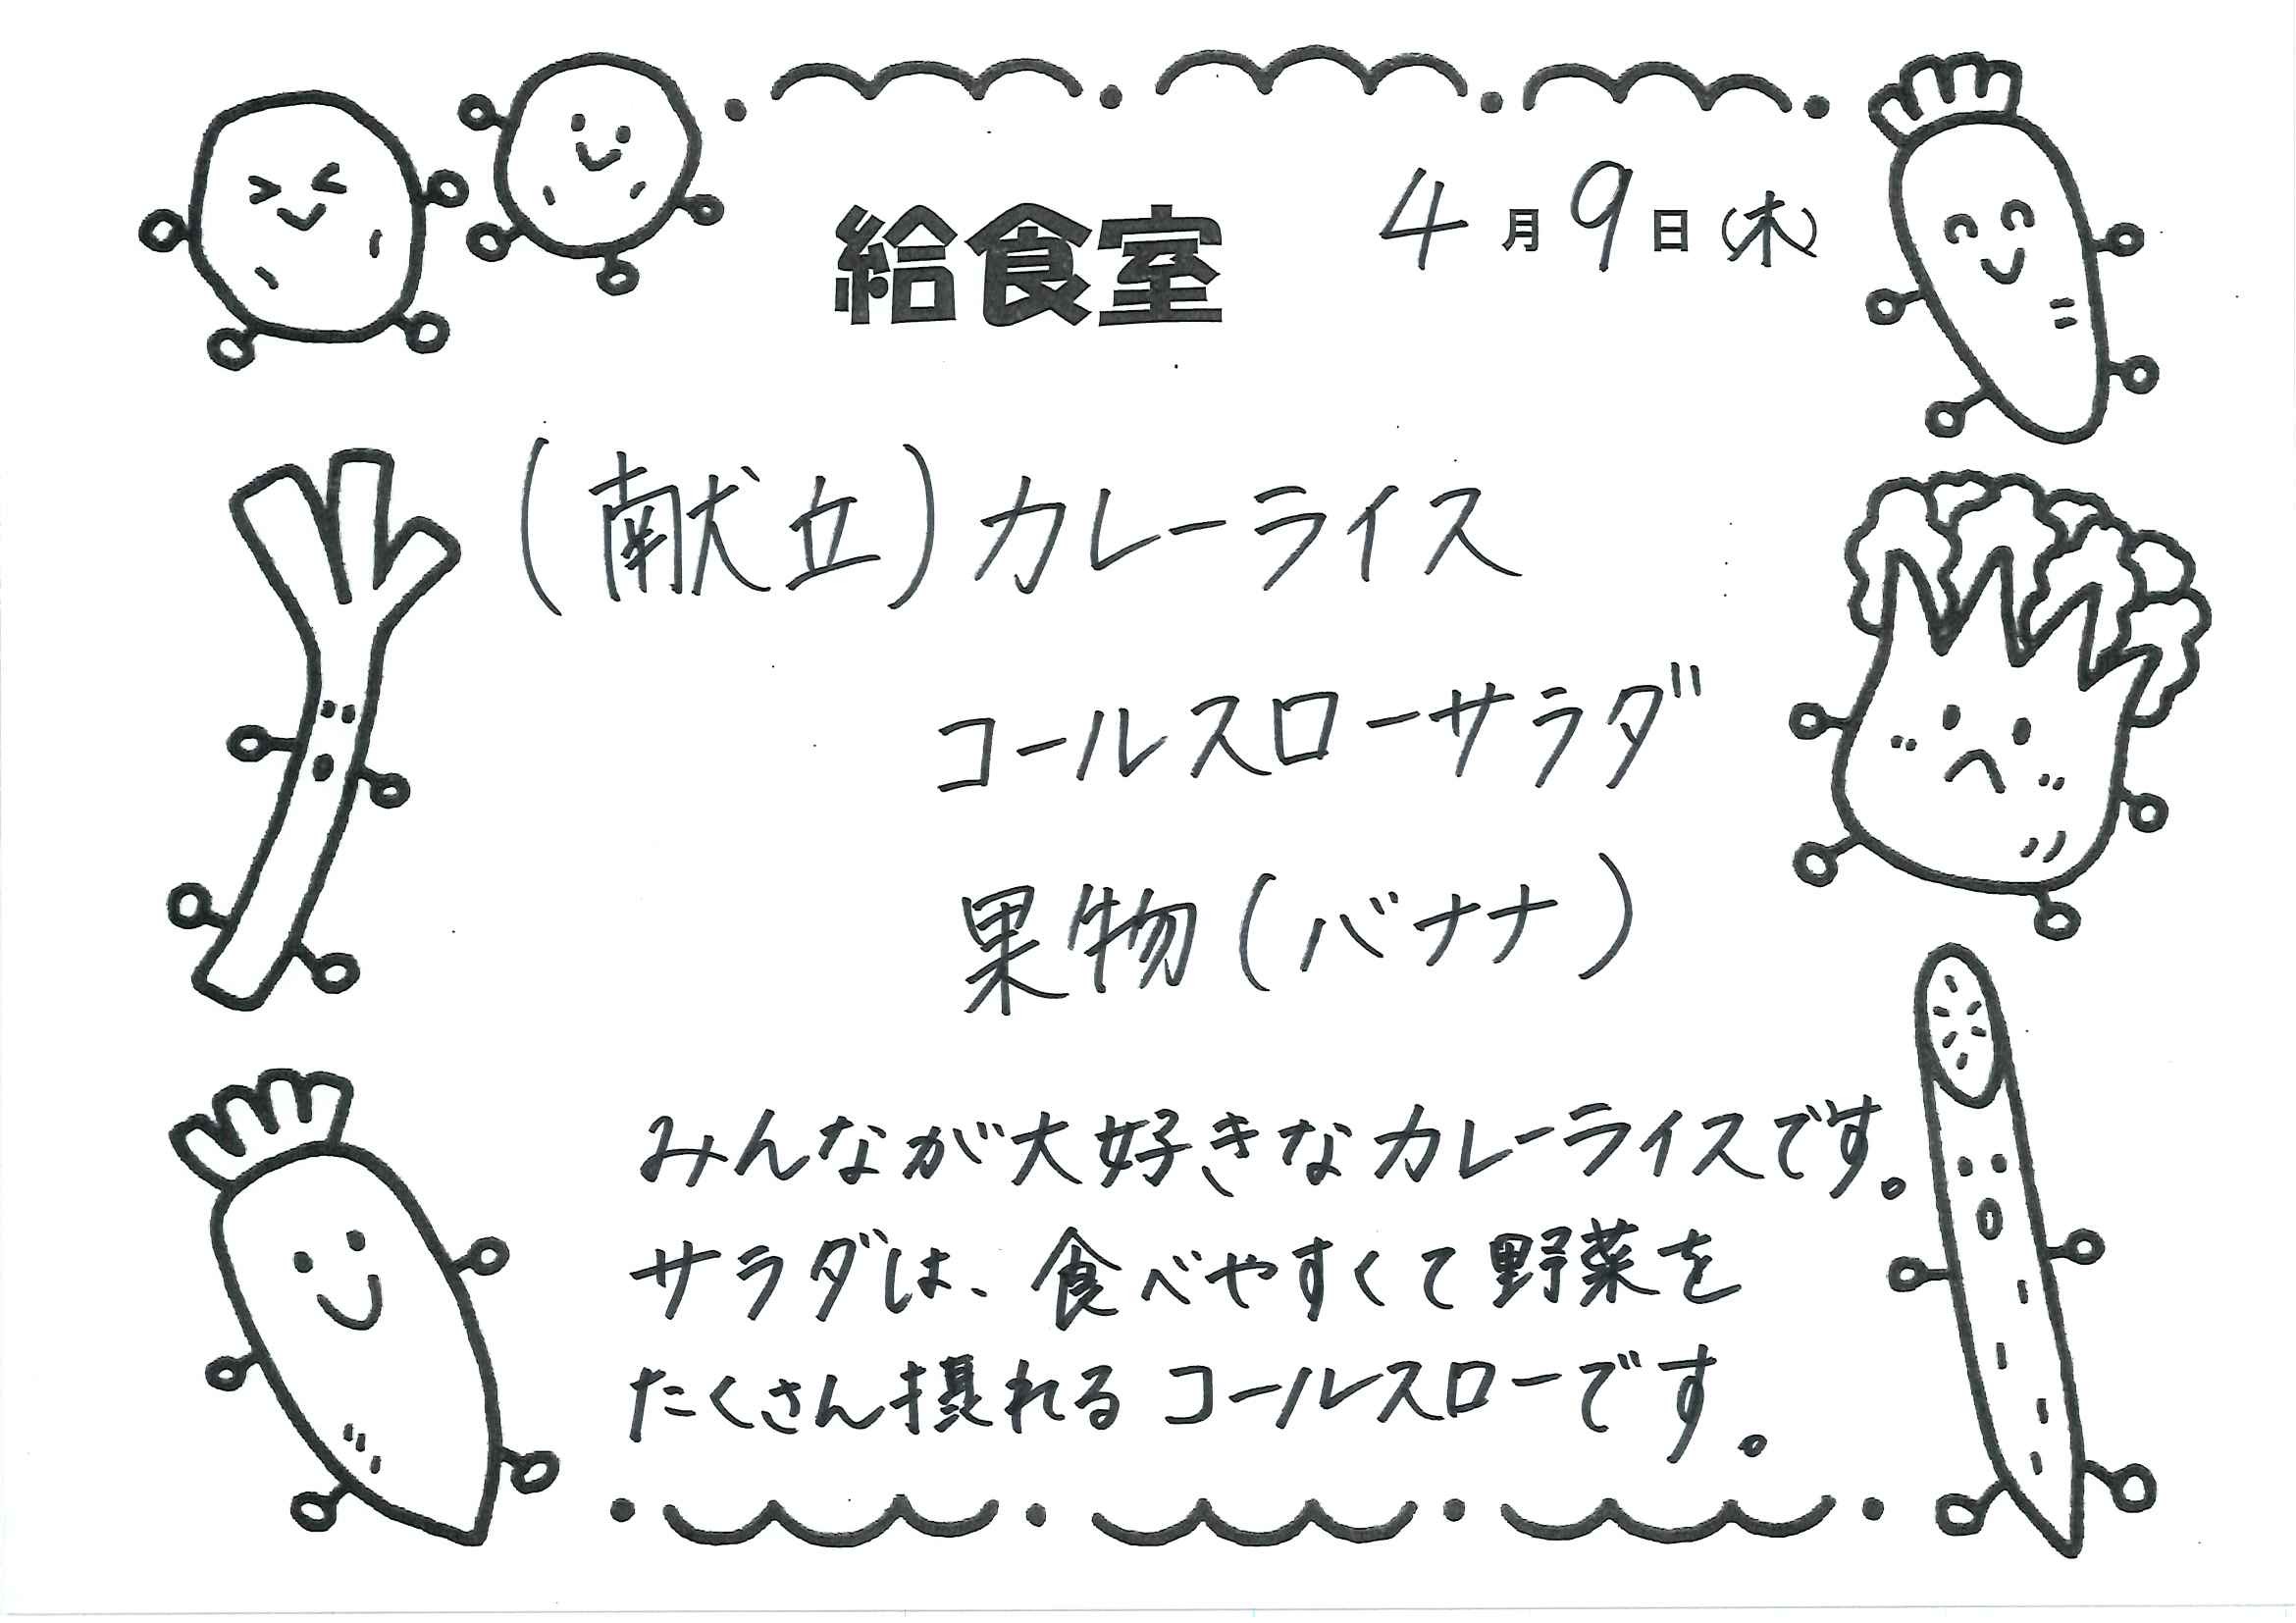 給食室 4月9日(木)
(献立)カレーライス
コールスローサラダ
果物(バナナ)
みんなが大好きなカレーライスです。
サラダは、食べやすくて野菜を
たくさん摂れるコールスローです。